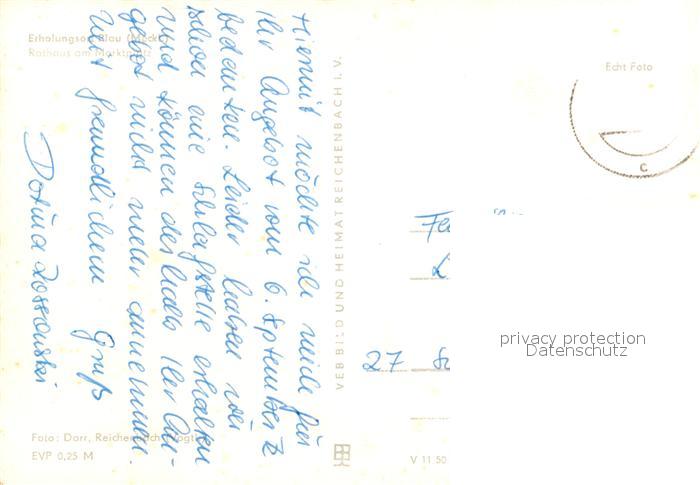 Erholungsort Plau (Meckl)
Rathaus am Marktplatz
Hiermit möchte ich mich für
Ihr Angebot vom 6. September
bedanken. Leider haben wir
schon eine Schlafstelle erhalten
und können deshalb Ihr An-
gebot nicht mehr annehmen.
Mit freundlichem Gruß
Foto: Darr, Reichenbach (Vogtl)
EVP 0,25 M
VEB BILD UND HEIMAT REICHENBACH I. V.
Echt Foto
C
27
privacy protection
Datenschutz
V 11 50